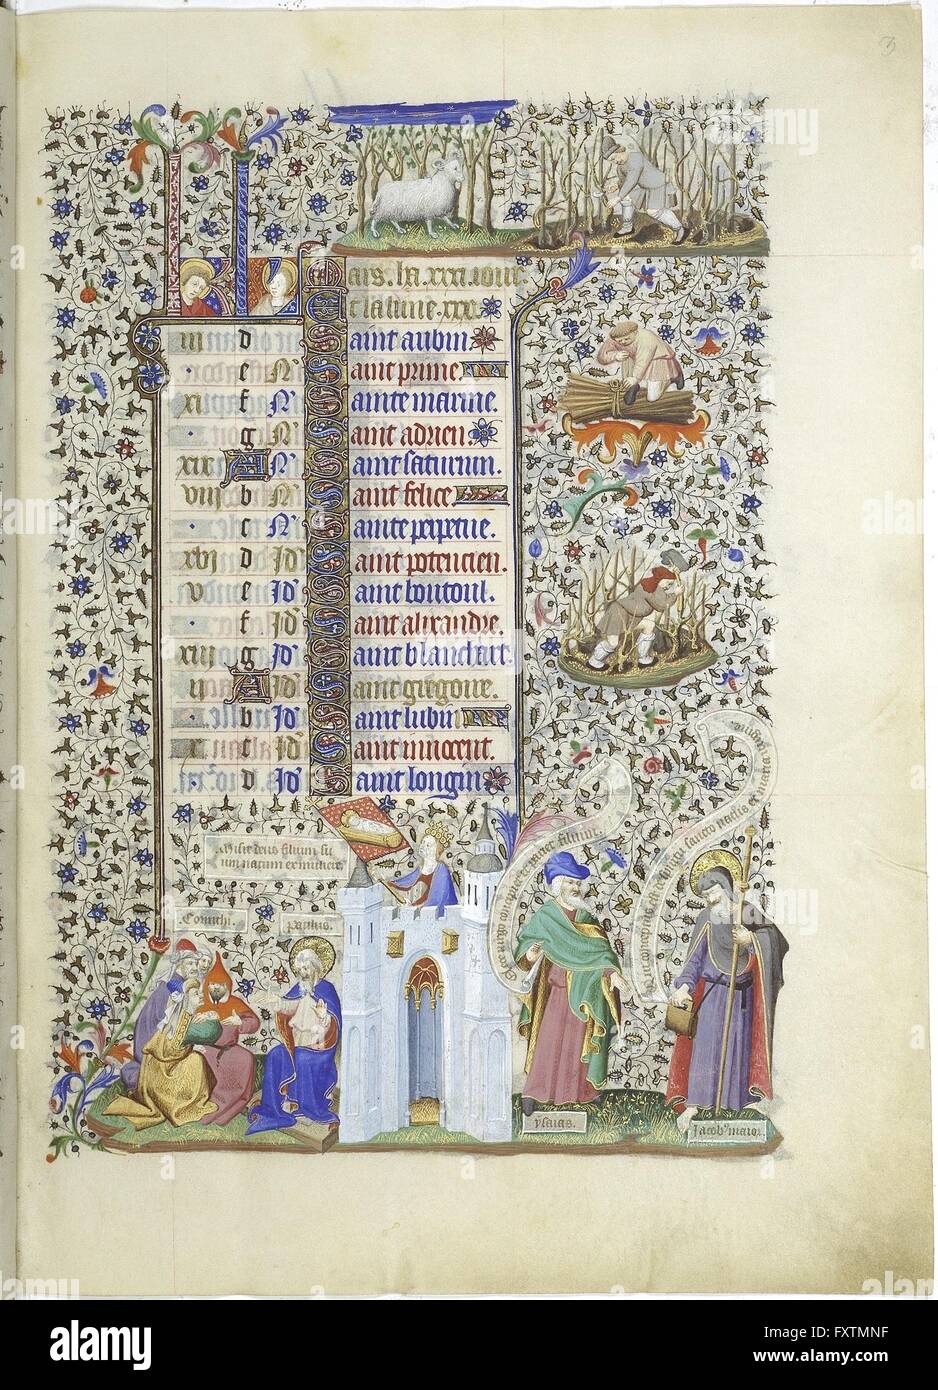 3
Mars. la xxxi. iours
Et la lune. xxx.
iii d Saint aubin.
e N Saint prime
xi f N Sainte marine.
g N Saint adrien.
xix A N Saint saturnin.
viii b N Saint felice
c N Sainte perpetue.
xvi d Id Saint potencien.
v e Id Saint boutoul.
f Id Saint alixandre.
xiii g Id Saint blanchart.
ii A Id Saint gregoire.
b Id Saint lubin
x c Id Saint innocent.
d Id Saint longin
Misit deus filium su
um natum ex muliere.
Corinthi.
Paulus.
Ecce virgo concipiet et pariet filium.
Qui conceptus est de spiritu sancto natus ex maria virgine.
ysaias.
Jacob9 maior.
alamy
alamy stock photo
FXTMNF
www.alamy.com